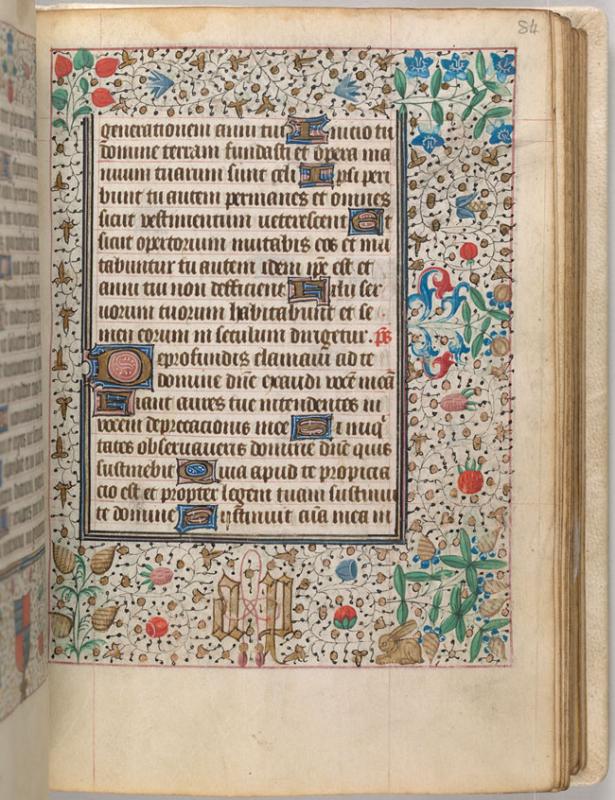 84
generationem anni tui Inicio tu
domine terram fundasti et opera ma
nuum tuarum sunt celi Ipsi peri
bunt tu autem permanes et omnes
sicut vestimentum veterescent Et
sicut opertorium mutabis eos et mu
tabuntur tu autem idem ip̄e est et
anni tui non defficient Filii ser
uorum tuorum habitabunt et se
men eorum in seculum dirigetur. ps
Deprofundis clamaui ad te
domine dn̄e exaudi vocē meā
Fiant aures tue intendentes in
vocem deprecacionis mee Si iniq
tates obseruaueris domine dn̄e quis
sustinebit Quia apud te propicia
cio est et propter legem tuam sustinui
te domine Sustinuit aīa mea in